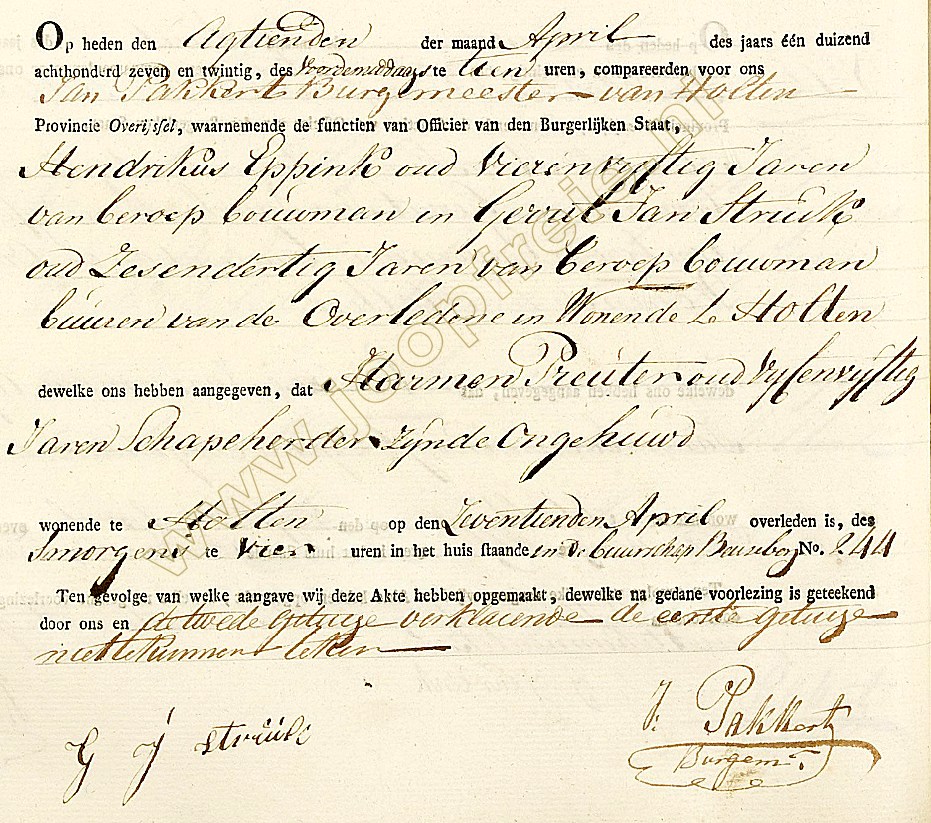 Op heden den Agtienden der maand April des jaars één duizend
achthonderd zeven en twintig, des Voordemiddags te tien uren, compareerden voor ons
Jan Pakkert Burgemeester van Holten
Provincie Overijssel, waarnemende de functien van Officier van den Burgerlijken Staat,
Hendrikus Eppink oud Vierenvyftig Jaren
van beroep bouwman en Gerrit Jan Struik
oud Zesendertig Jaren van beroep bouwman
buuren van de Overledene en Wonende te Holten
dewelke ons hebben aangegeven, dat Harmen Preuter oud Vyfenvyftig
Jaren Schapeherder zynde Ongehuwd
wonende te Holten op den Zeventienden April overleden is, des
Smorgens te Vier uren in het huis staande in de buurschap No. 244
Ten gevolge van welke aangave wij deze Akte hebben opgemaakt, dewelke na gedane voorlezing is geteekend
door ons en de twede getuige verklarende de eerste getuige
niet te kunnen teken
G J Struik
J: Pakkert
Burgemr.
www.jeopfreie.nl